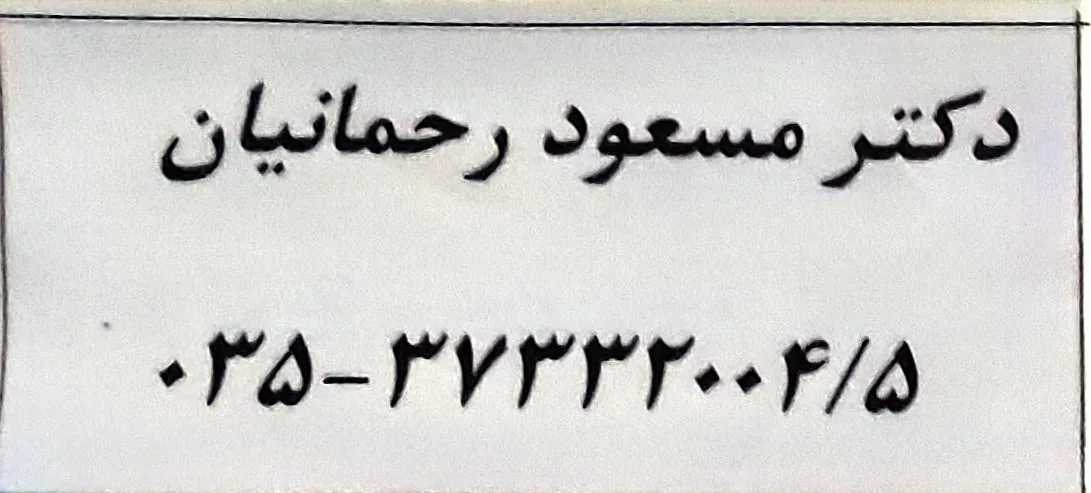 دکتر مسعود رحمانیان
۰۳۵-۳۷۳۳۲۰۰۴/۵